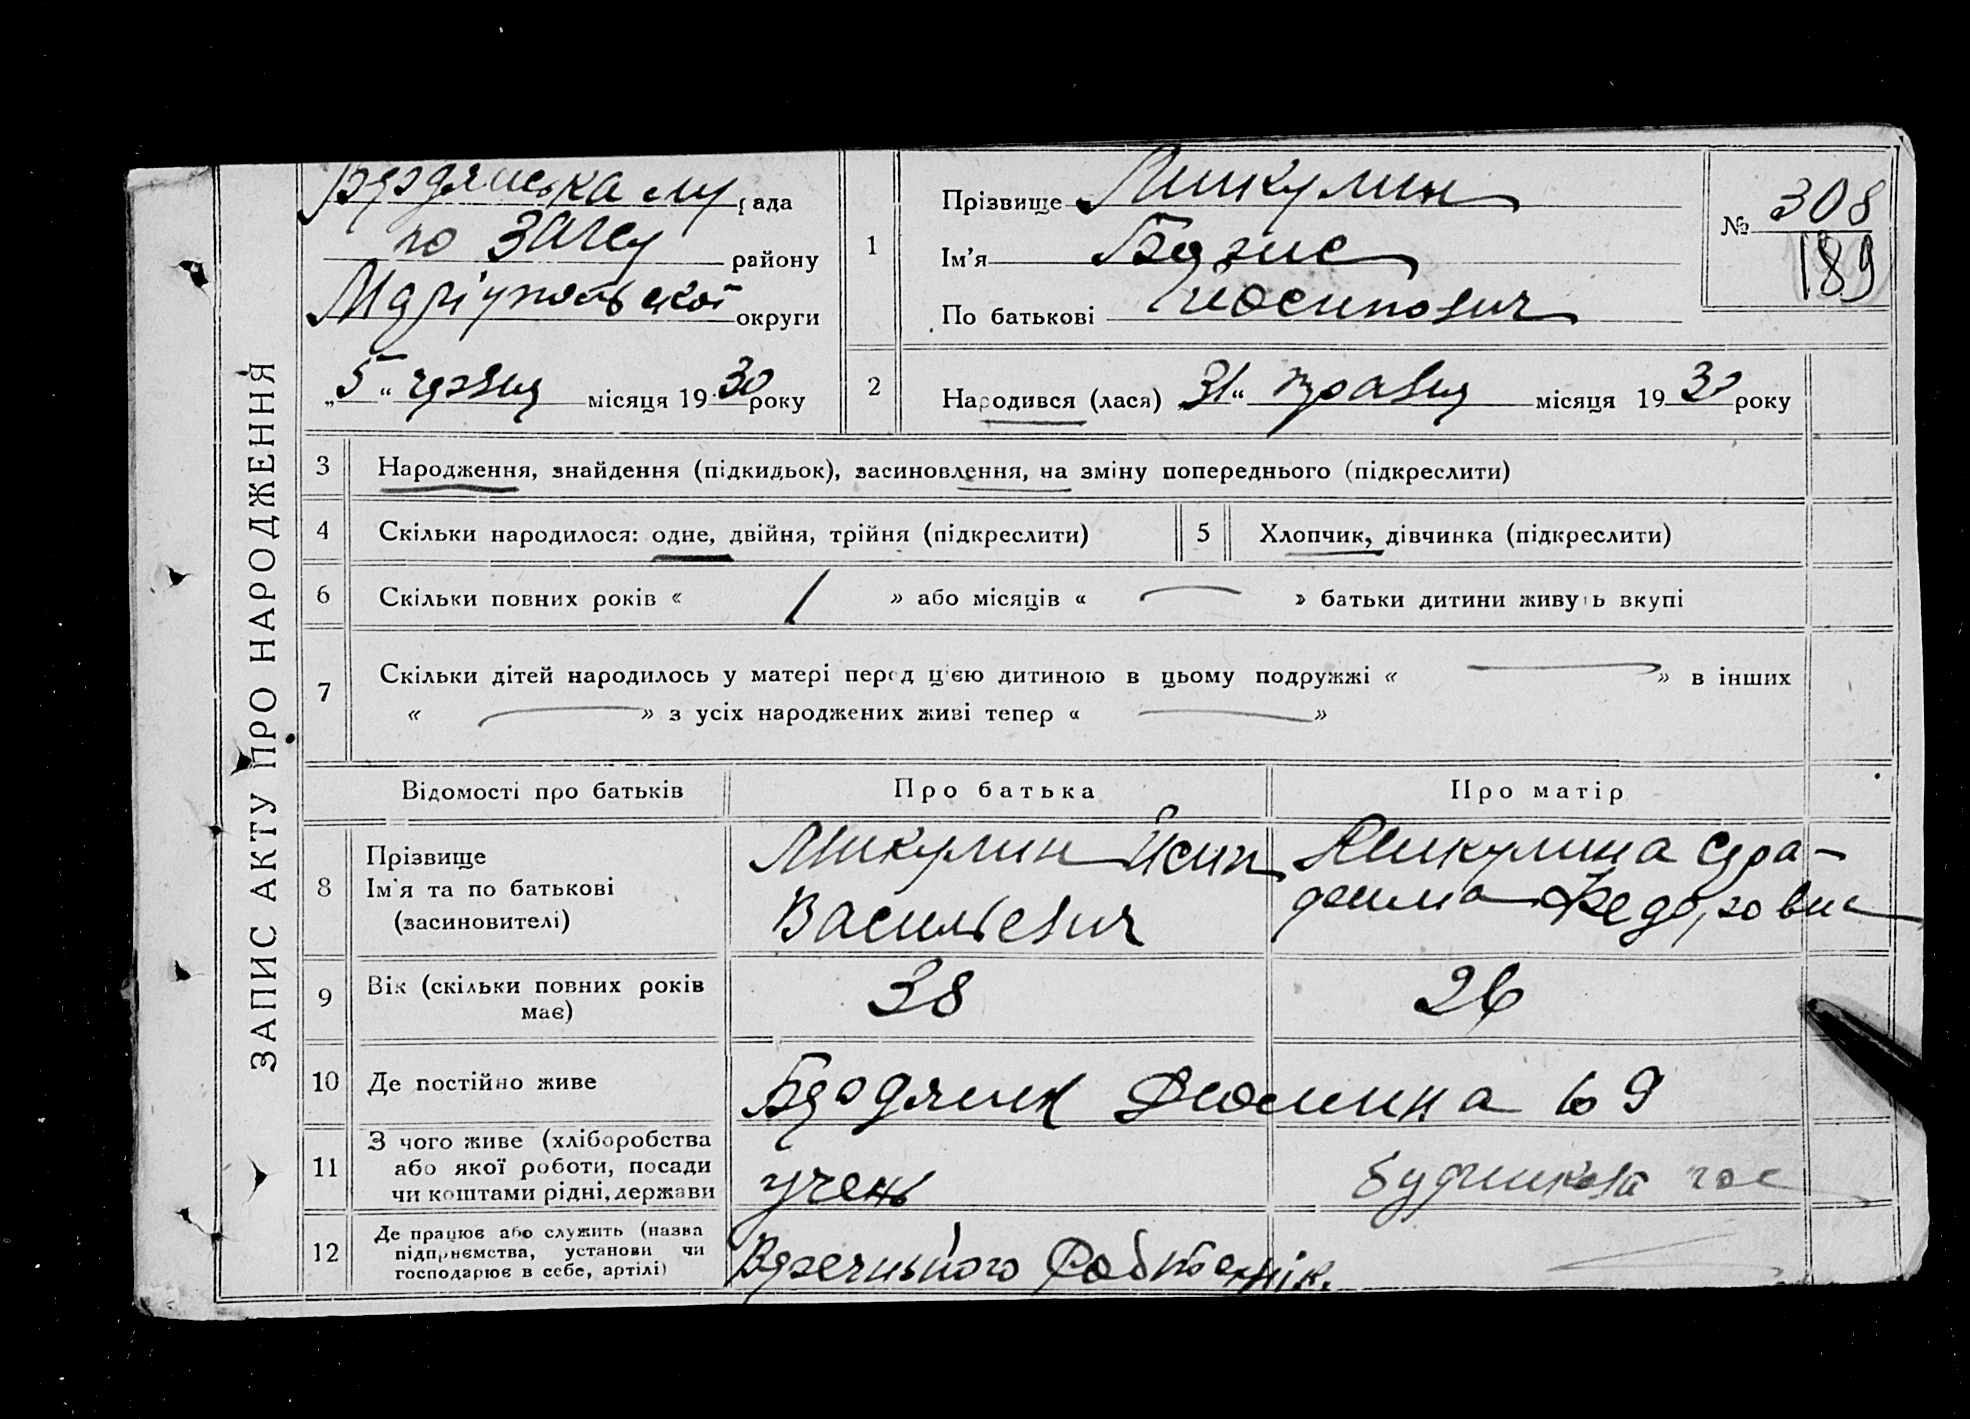 ЗАПИС АКТУ ПРО НАРОДЖЕННЯ
Бердянська рада
по ЗАГСу району
Маріупольської округи
„5“ червня місяця 1930 року
1
Прізвище Микулин
Ім’я Борис
По батькові Йосипович
№ 308
189
2
Народився (лася) 31“ травня місяця 1930 року
3 Народження, знайдення (підкидьок), засиновлення, на зміну попереднього (підкреслити)
4 Скільки народилося: одне, двійня, трійня (підкреслити) 5 Хлопчик, дівчинка (підкреслити)
6 Скільки повних років « 1 » або місяців « — » батьки дитини живуть вкупі
7 Скільки дітей народилось у матері перед цією дитиною в цьому подружжі « — » в інших
« — » з усіх народжених живі тепер « — »
Відомості про батьків Про батька Про матір
8 Прізвище
Ім’я та по батькові
(засиновителі)
Микулин Йсип
Васильевич
Микулина
Федоровна
9 Вік (скільки повних років
має)
38 26
10 Де постійно живе Бердянск 9
11 З чого живе (хліборобства
або якої роботи, посади
чи коштами рідні, держави
учень
12 Де працює або служить (назва
підприємства, установи чи
господарює в себе, артілі)